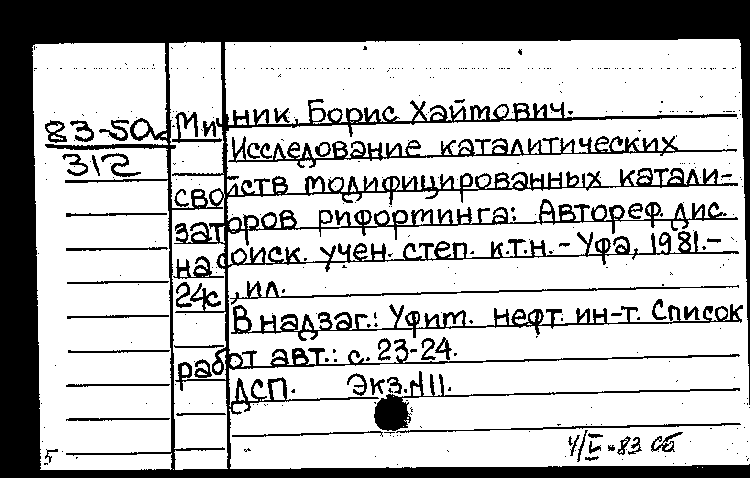 83-50а Мичник, Борис Хаймович.
312 Исследование каталитических
свойств модифицированных катали-
заторов рифортинга: Автореф. дис.
на соиск. учен. степ. к.т.н. - Уфа, 1981.-
24с, ил.
В надзаг.: Уфим. нефт. ин-т. Список
работ авт.: с. 23-24.
ДСП. Экз.N11.
5 4/V-83 сб